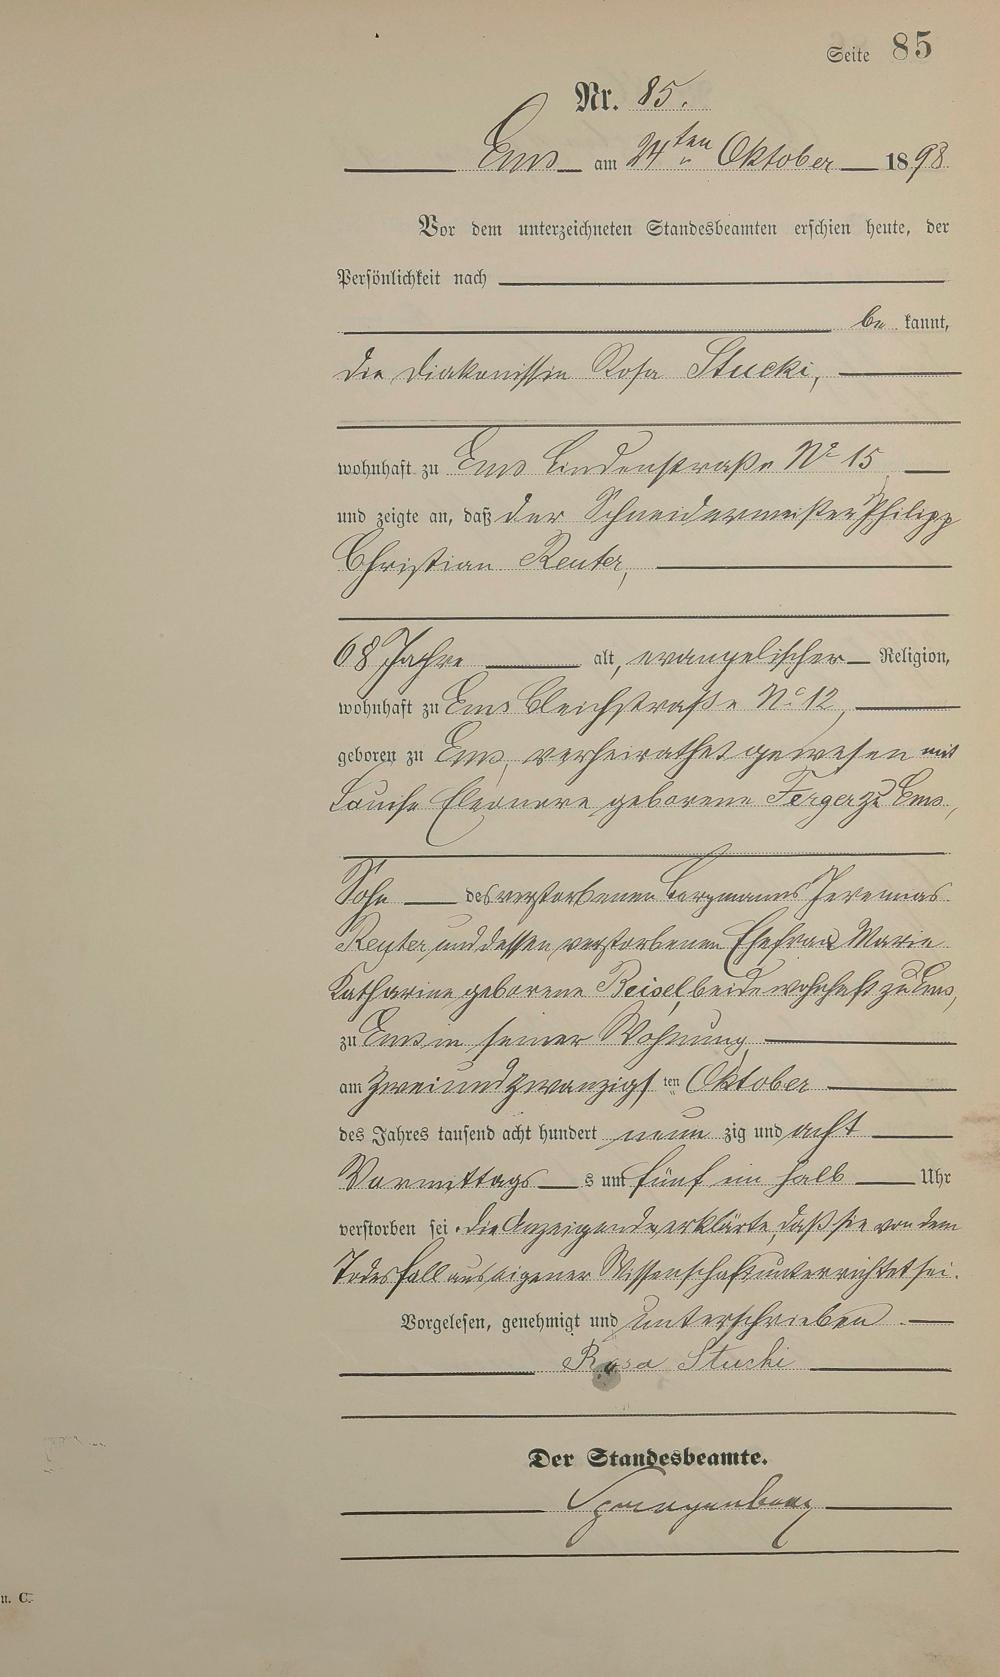 Seite 85
Nr. 85.
Ems am 24ten Oktober 1898
Vor dem unterzeichneten Standesbeamten erschien heute, der
Persönlichkeit nach
be kannt,
die Diakonissin Rosa Stucki,
wohnhaft zu Ems Lindenstraße No 15
und zeigte an, daß der Schneidermeister Philipp
Christian Reuter,
68 Jahre alt, evangelischer Religion,
wohnhaft zu Ems Bleichstraße No 12,
geboren zu Ems, verheirathet gewesen mit
Louise Eleonore geborene Ferger zu Ems,
Sohn des verstorbenen Bergmannes Jeremias
Reuter und dessen verstorbenen Ehefrau Marie
Katharine geborene Beisel, beide wohnhaft zu Ems,
zu Ems in seiner Wohnung
am zweiundzwanzigsten Oktober
des Jahres tausend acht hundert neun zig und acht
Vormittags s um fünf ein halb Uhr
verstorben sei. Die Anzeigende erklärte, daß sie von dem
Todesfall aus eigener Wissenschaft unterrichtet sei.
Vorgelesen, genehmigt und unterschrieben.
Rosa Stucki
Der Standesbeamte.
Spangenberg
u. C.